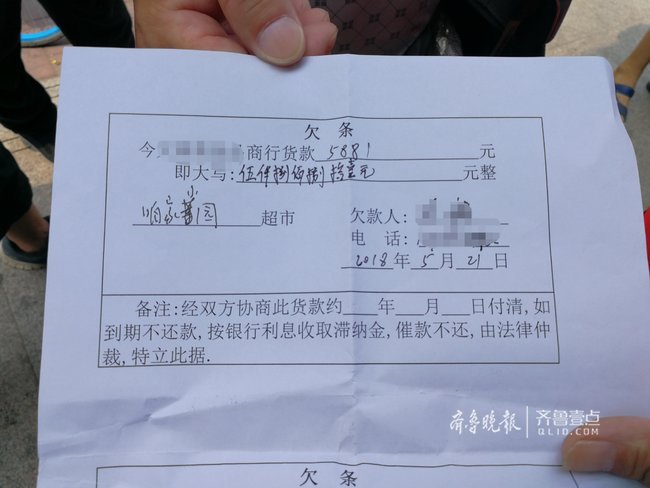 欠 条
今 商行货款 5881 元
即大写:伍仟捌佰捌拾壹元 元整
小
园 超市 欠款人:
电 话:
2018 年 5 月 21 日
备注:经双方协商此货款约____年____月____日付清,如
到期不还款,按银行利息收取滞纳金,催款不还,由法律仲
裁,特立此据.
齐鲁晚报 齐鲁壹点
QLID.COM
欠 条